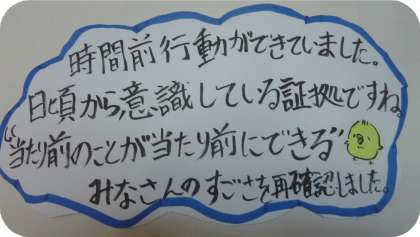 時間前行動ができていました。
日頃から、意識している証拠ですね。
"当たり前のことが当たり前にできる"
みなさんのすごさを再確認しました。